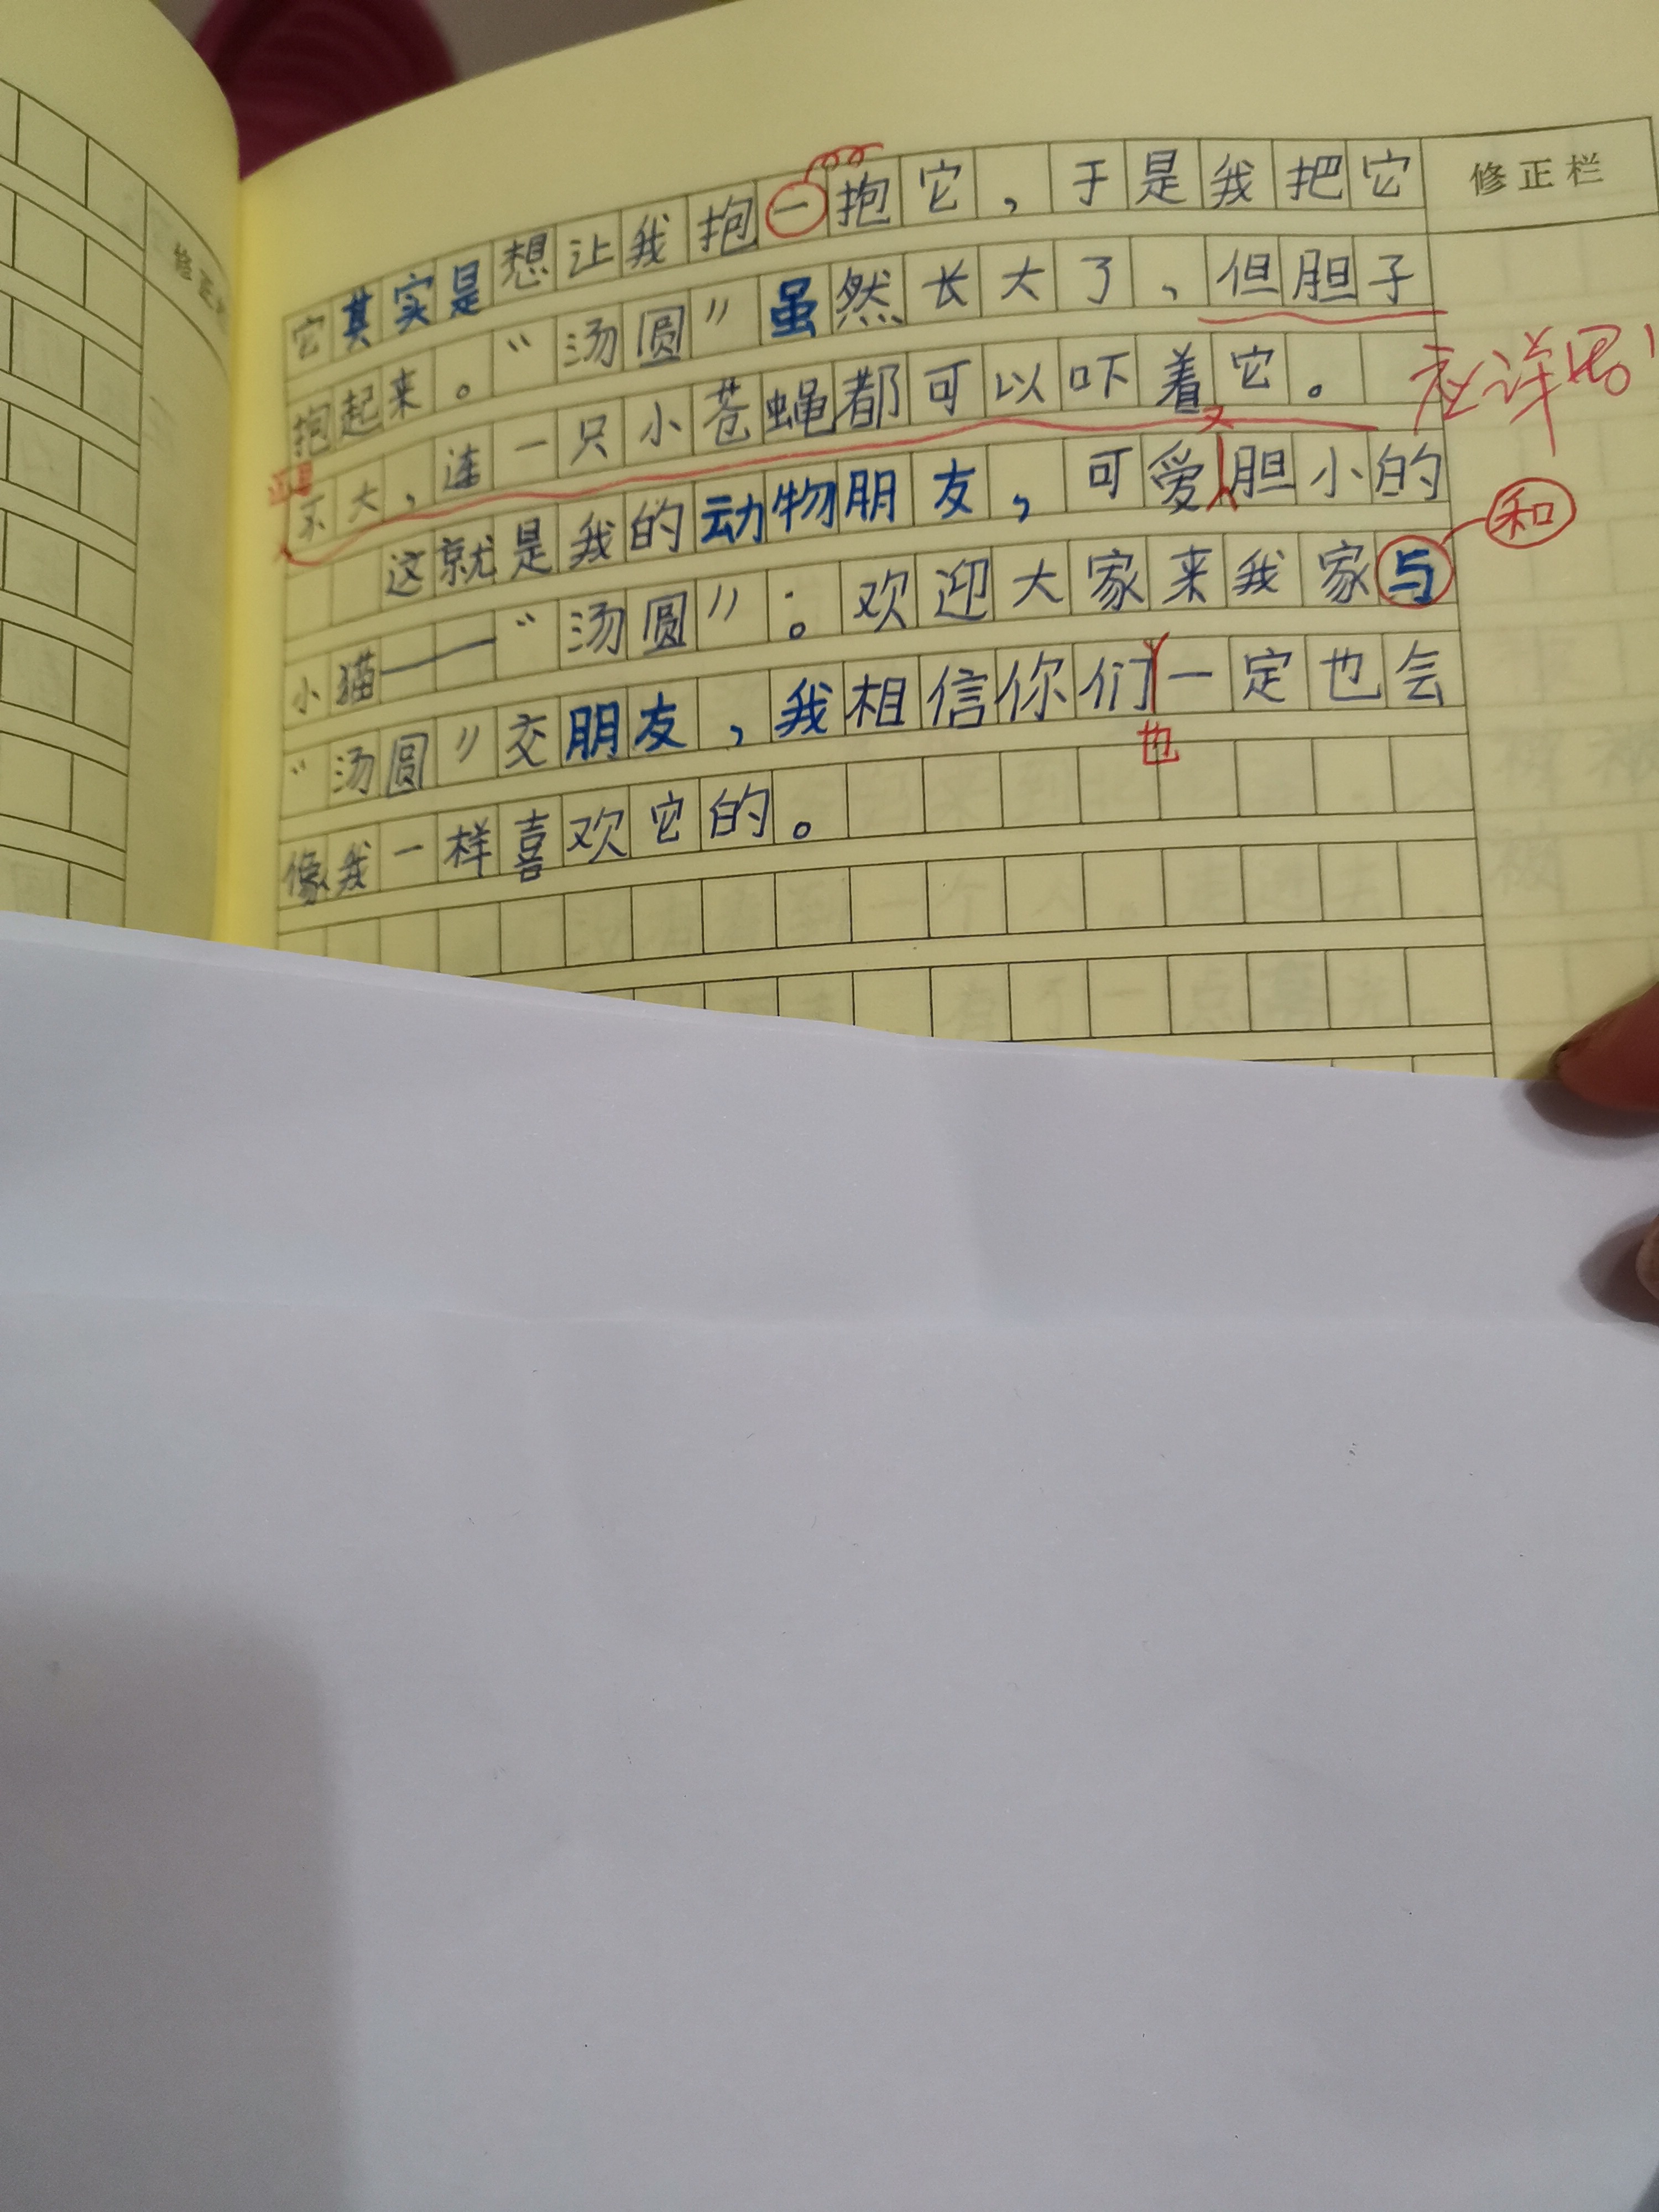 修正栏
它其实是想让我抱一抱它，于是我把它
抱起来。“汤圆”虽然长大了、但胆子
不大，连一只小苍蝇都可以吓着它。
应详写！
这就是我的动物朋友，可爱胆小的
又
和
小猫——“汤圆”。欢迎大家来我家与
“汤圆”交朋友，我相信你们一定也会
也
像我一样喜欢它的。